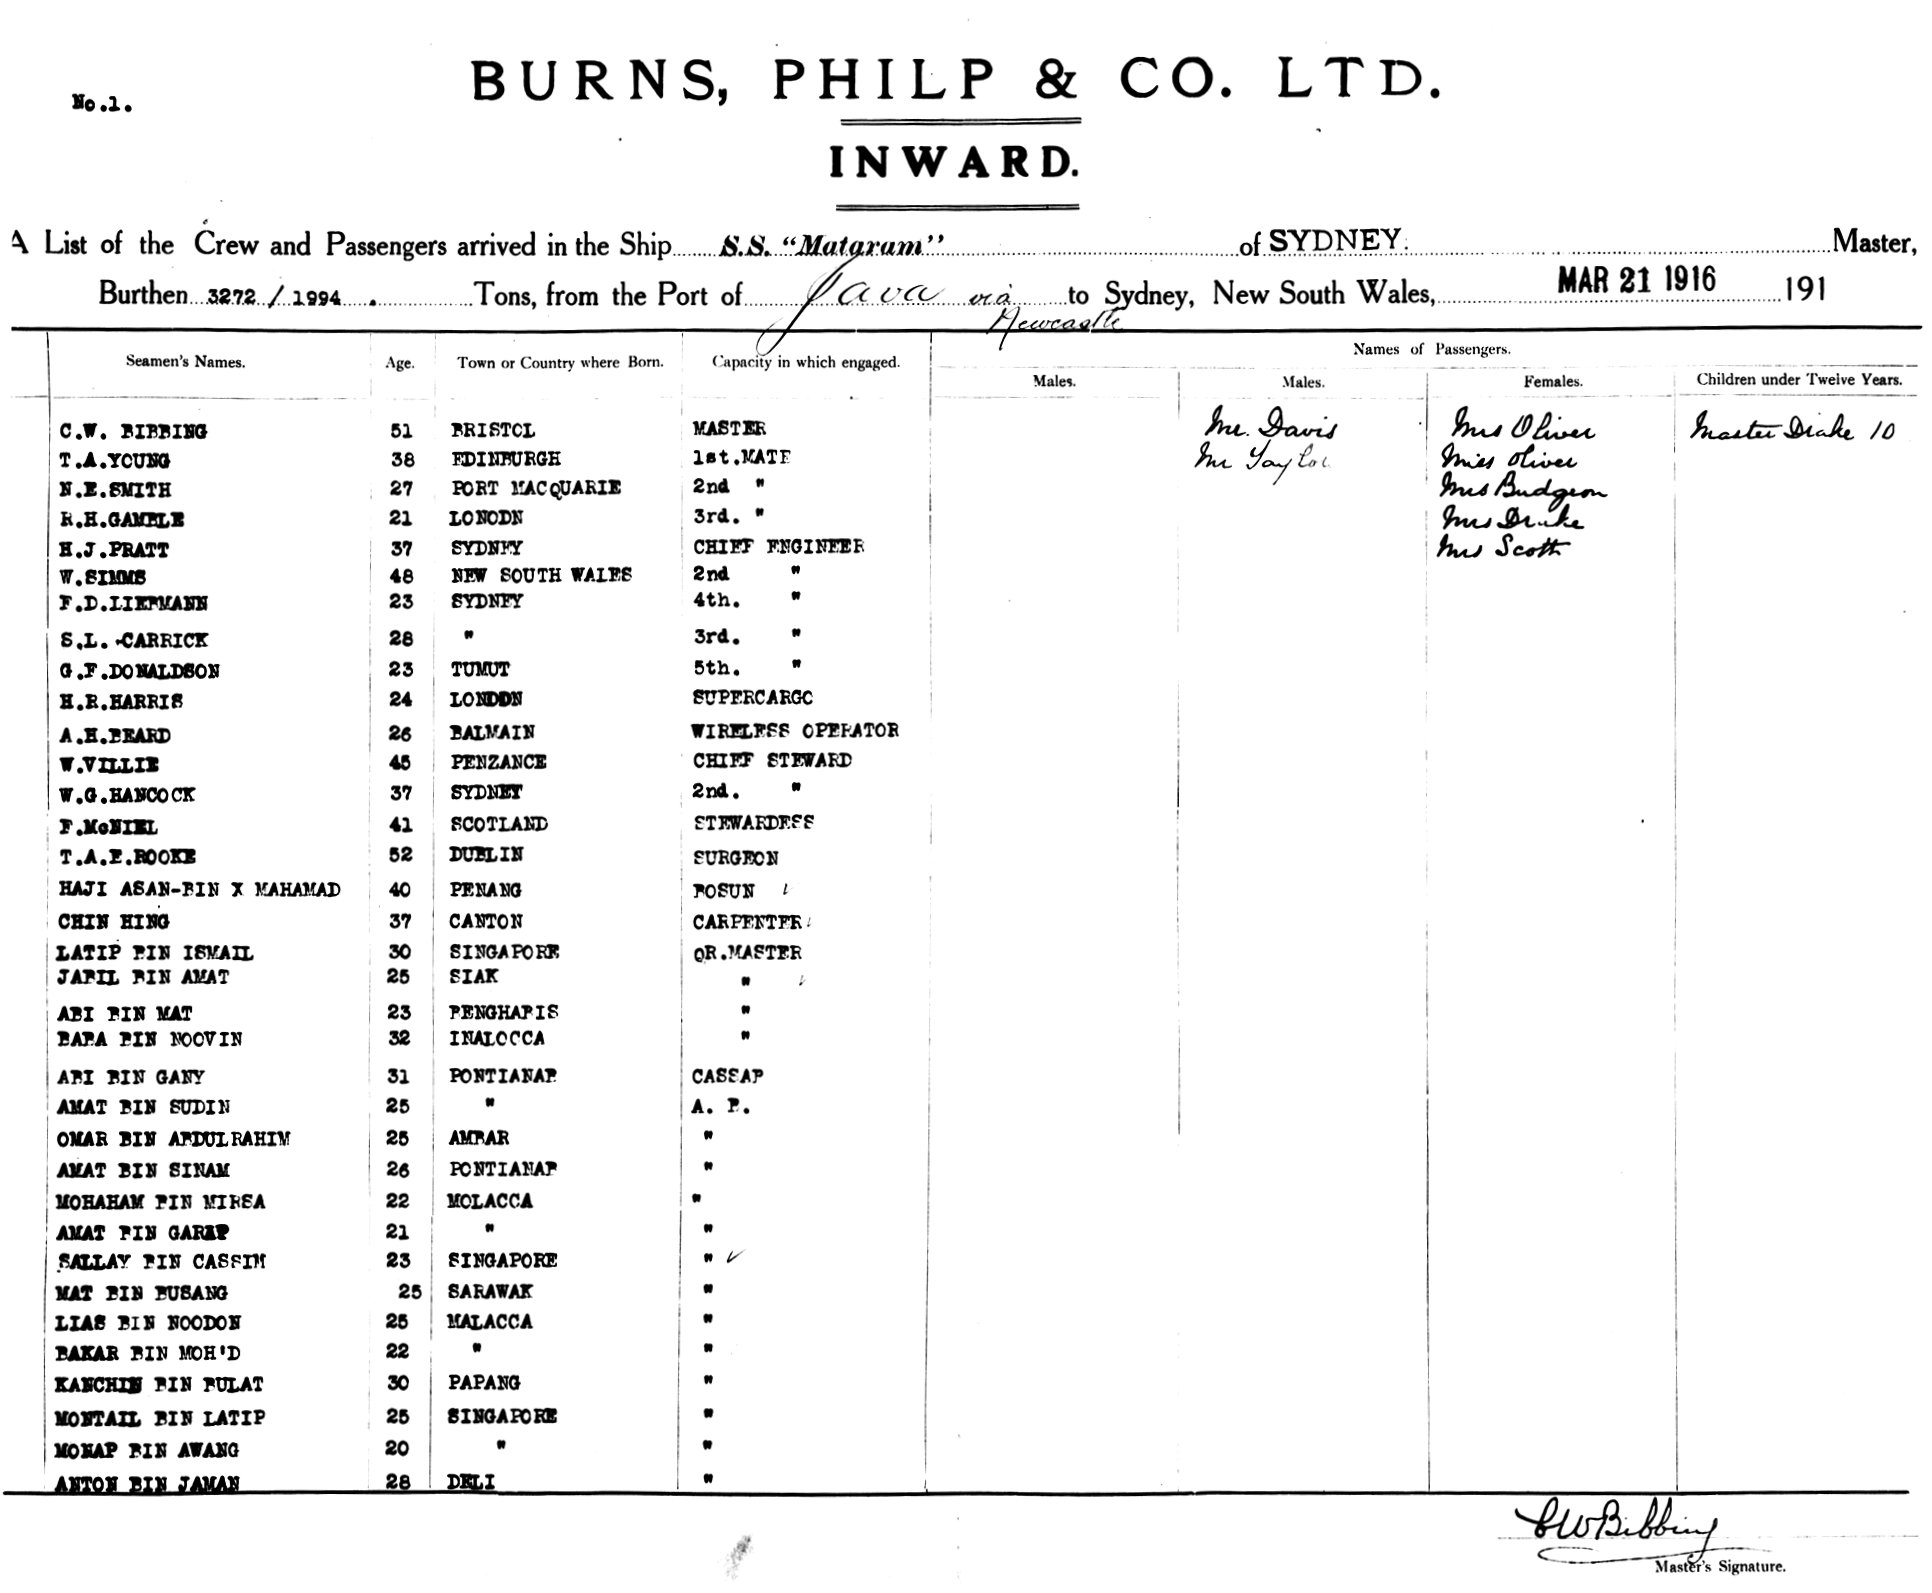 No.1.
BURNS, PHILP & CO. LTD.
INWARD.
A List of the Crew and Passengers arrived in the Ship S.S. "Mataram" of SYDNEY. Master,
Burthen 3272 / 1994 . Tons, from the Port of Java via to Sydney, New South Wales, MAR 21 1916 191
Newcastle
Names of Passengers.
Seamen's Names. Age. Town or Country where Born. Capacity in which engaged. Males. Males. Females. Children under Twelve Years.
C.W. BIBBING 51 BRISTOL MASTER Mr. Davis Mrs Oliver Master Drake 10
T.A.YOUNG 38 EDINBURGH 1st.MATE Mr Taylor Miss Oliver
N.E.SMITH 27 PORT MACQUARIE 2nd " Mrs Budgeon
R.H.GAMBLE 21 LONODN 3rd. " Mrs Drake
H.J.PRATT 37 SYDNEY CHIEF ENGINEER Mrs Scott
W.SIMMS 48 NEW SOUTH WALES 2nd "
F.D.LIEPMANN 23 SYDNEY 4th. "
S.L. -CARRICK 28 " 3rd. "
G.F.DONALDSON 23 TUMUT 5th. "
H.R.HARRIS 24 LONDON SUPERCARGO
A.H.BEARD 26 BALMAIN WIRELESS OPERATOR
W.VILLIE 45 PENZANCE CHIEF STEWARD
W.G.HANCOCK 37 SYDNEY 2nd. "
F.McNIEL 41 SCOTLAND STEWARDESS
T.A.E.ROOKE 52 DUBLIN SURGEON
HAJI ASAN-BIN X MAHAMAD 40 PENANG BOSUN
CHIN HING 37 CANTON CARPENTER
LATIP BIN ISMAIL 30 SINGAPORE QR.MASTER
JABIL BIN AMAT 25 SIAK "
ABI BIN MAT 23 PENGHARIS "
BABA BIN NOOVIN 32 INALOCCA "
ABI BIN GANY 31 PONTIANAR CASSAP
AMAT BIN SUDIN 25 " A. B.
OMAR BIN ABDULRAHIM 25 AMBAR "
AMAT BIN SINAM 26 PONTIANAP "
MOHAHAM BIN MIRSA 22 MOLACCA "
AMAT BIN GARIP 21 " "
SALLAY BIN CASSIM 23 SINGAPORE " ✓
MAT BIN BUSANG 25 SARAWAK "
LIAS BIN NOODON 25 MALACCA "
BAKAR BIN MOH'D 22 " "
KANCHIN BIN BULAT 30 PAPANG "
MONTAIL BIN LATIP 25 SINGAPORE "
MONAP BIN AWANG 20 " "
ANTON BIN JAMAN 28 DELI "
C W Bibbing
Master's Signature.